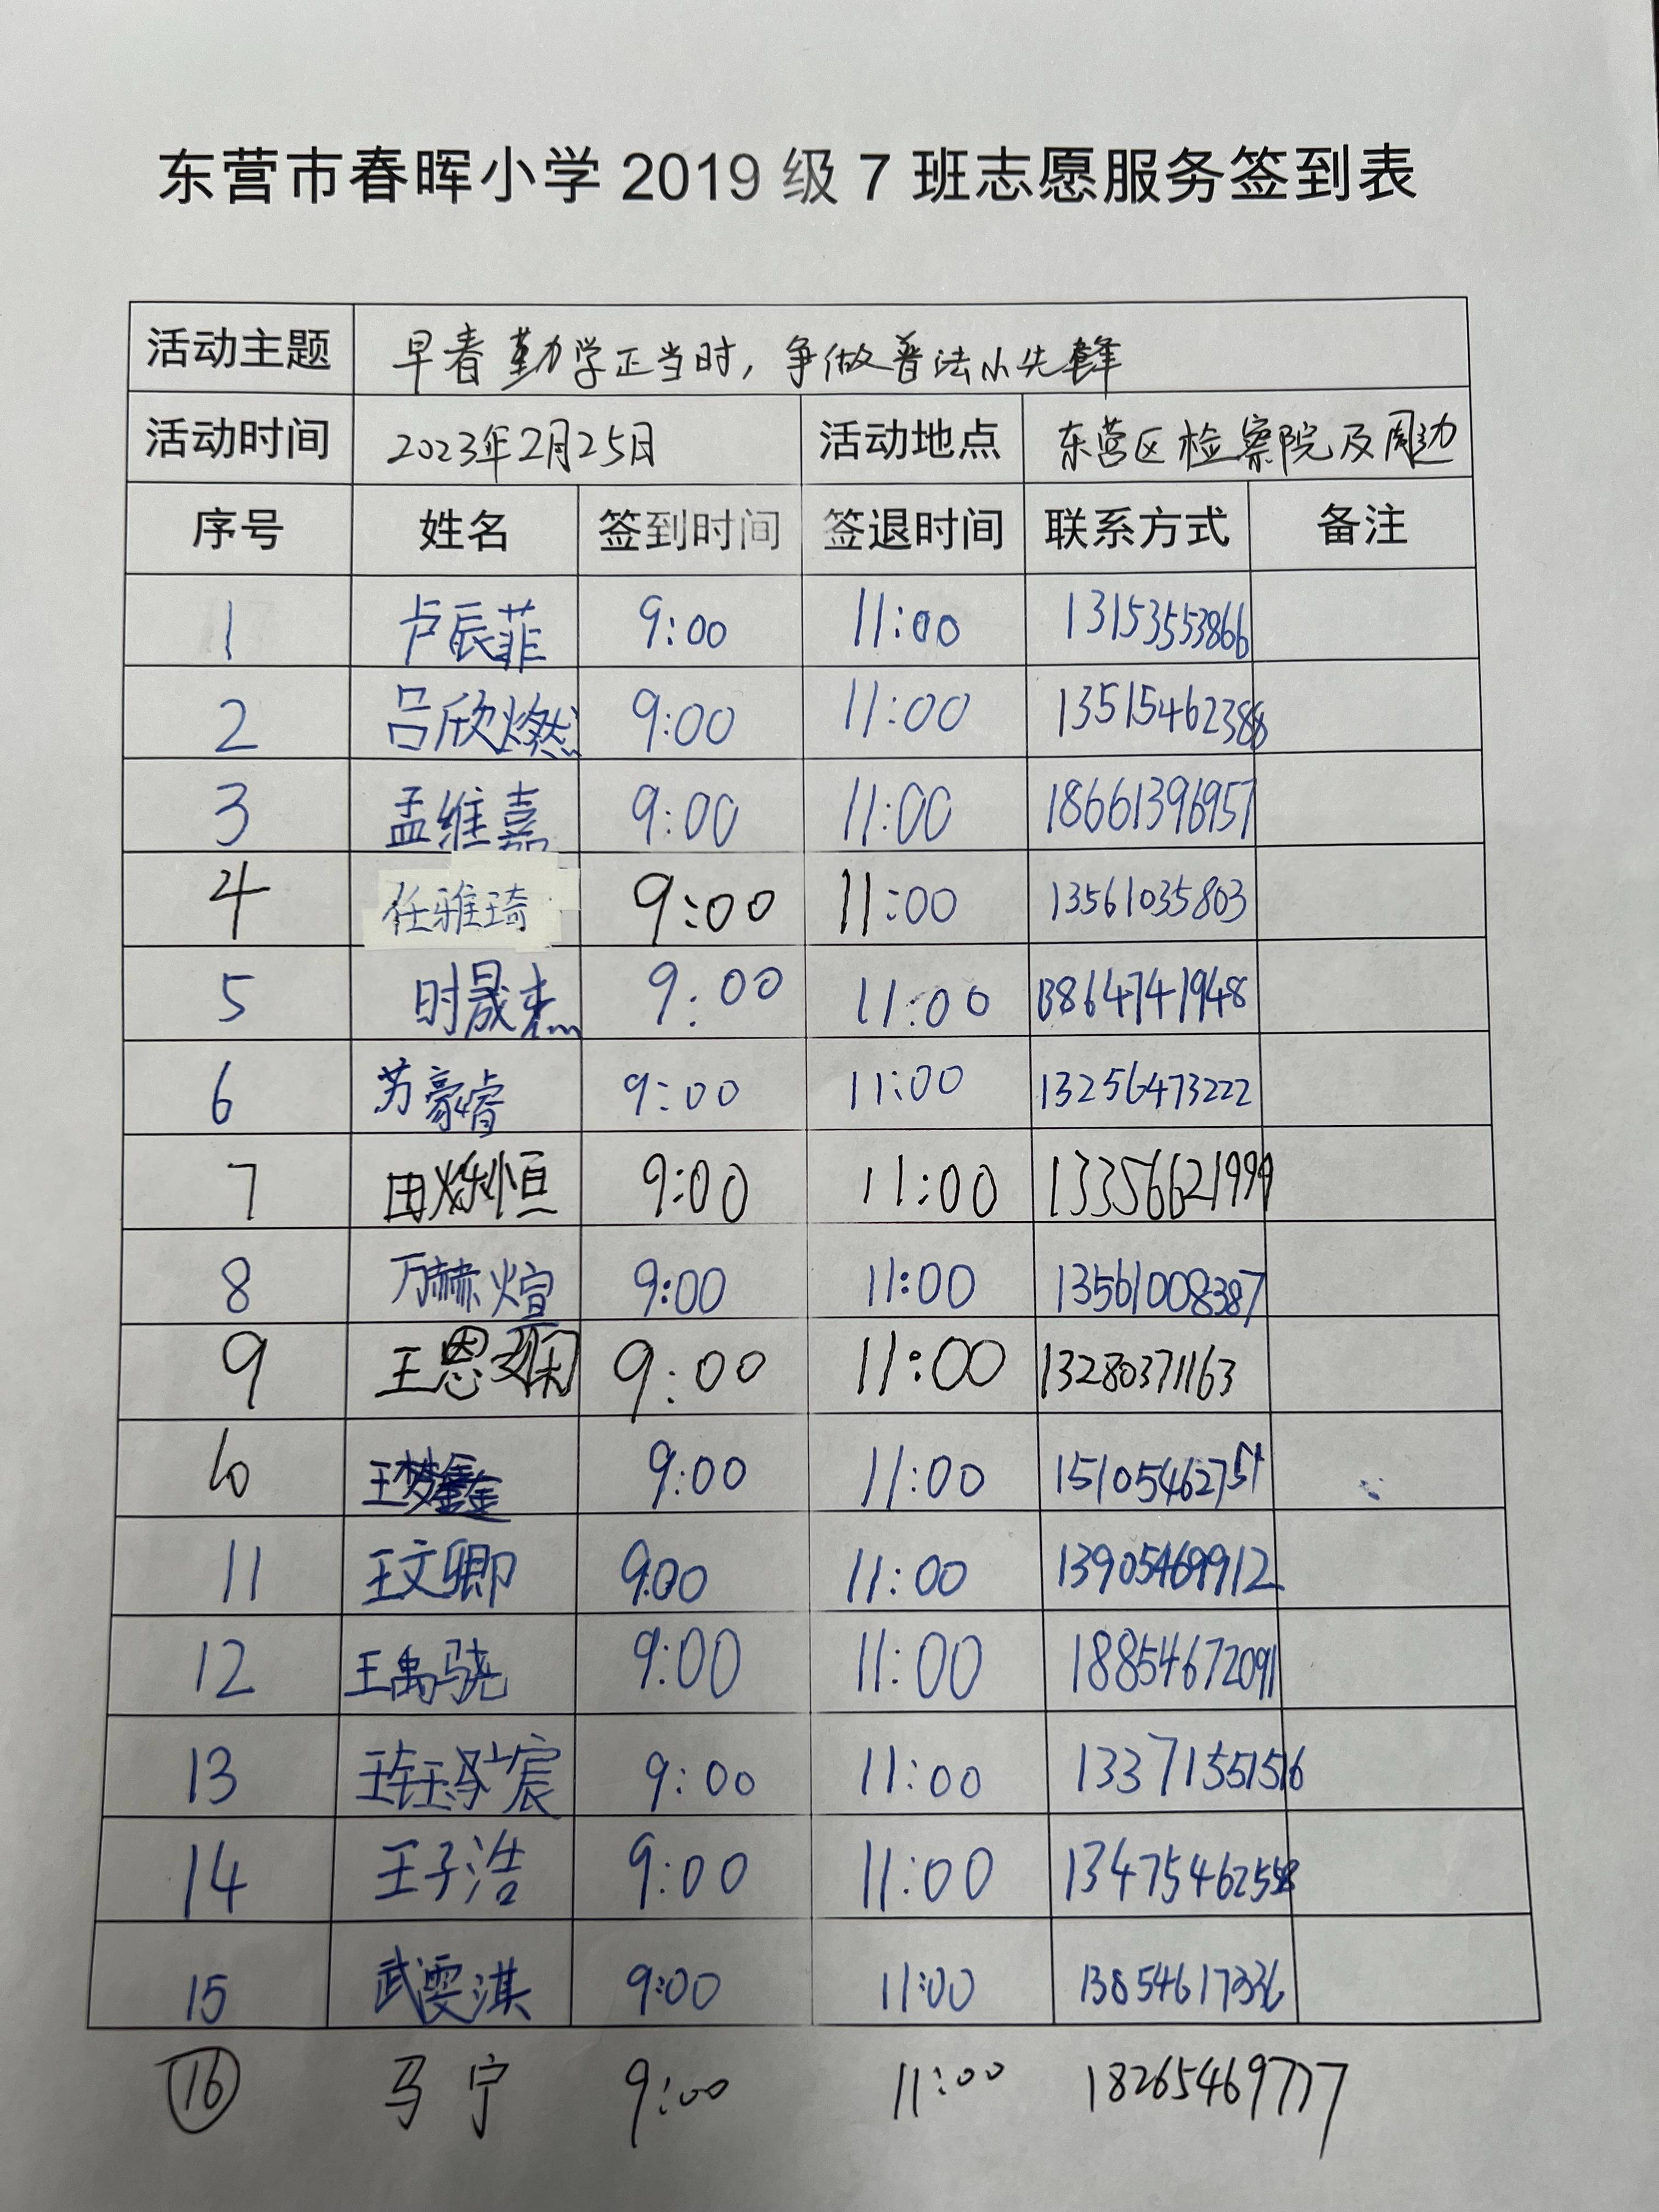 东营市春晖小学 2019 级 7 班志愿服务签到表
活动主题 早春勤学正当时，争做普法小先锋
活动时间 2023年2月25日 活动地点 东营区检察院及周边
序号 姓名 签到时间 签退时间 联系方式 备注
1 卢辰菲 9:00 11:00 13153553866
2 吕欣燃 9:00 11:00 13515462388
3 孟维嘉 9:00 11:00 18661396957
4 任雅琦 9:00 11:00 13561035803
5 时晟杰 9:00 11:00 13864741948
6 苏豪睿 9:00 11:00 13256473222
7 田烁恒 9:00 11:00 13356621999
8 万赫煊 9:00 11:00 13561008387
9 王恩娴 9:00 11:00 13280371163
10 王梦鑫 9:00 11:00
11 王文卿 9:00 11:00 13905469912
12 王禹骁 9:00 11:00 18854672091
13 9:00 11:00 13371551516
14 王子浩 9:00 11:00 13475462558
15 武雯淇 9:00 11:00 13854617336
16 马宁 9:00 11:00 18265469777